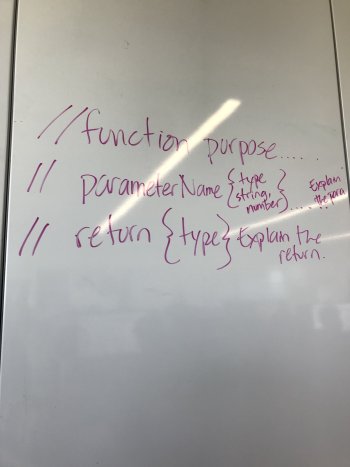 //function purpose.....
// parameterName {type (string, number)}.... Explain the para
// return {type} Explain the return.